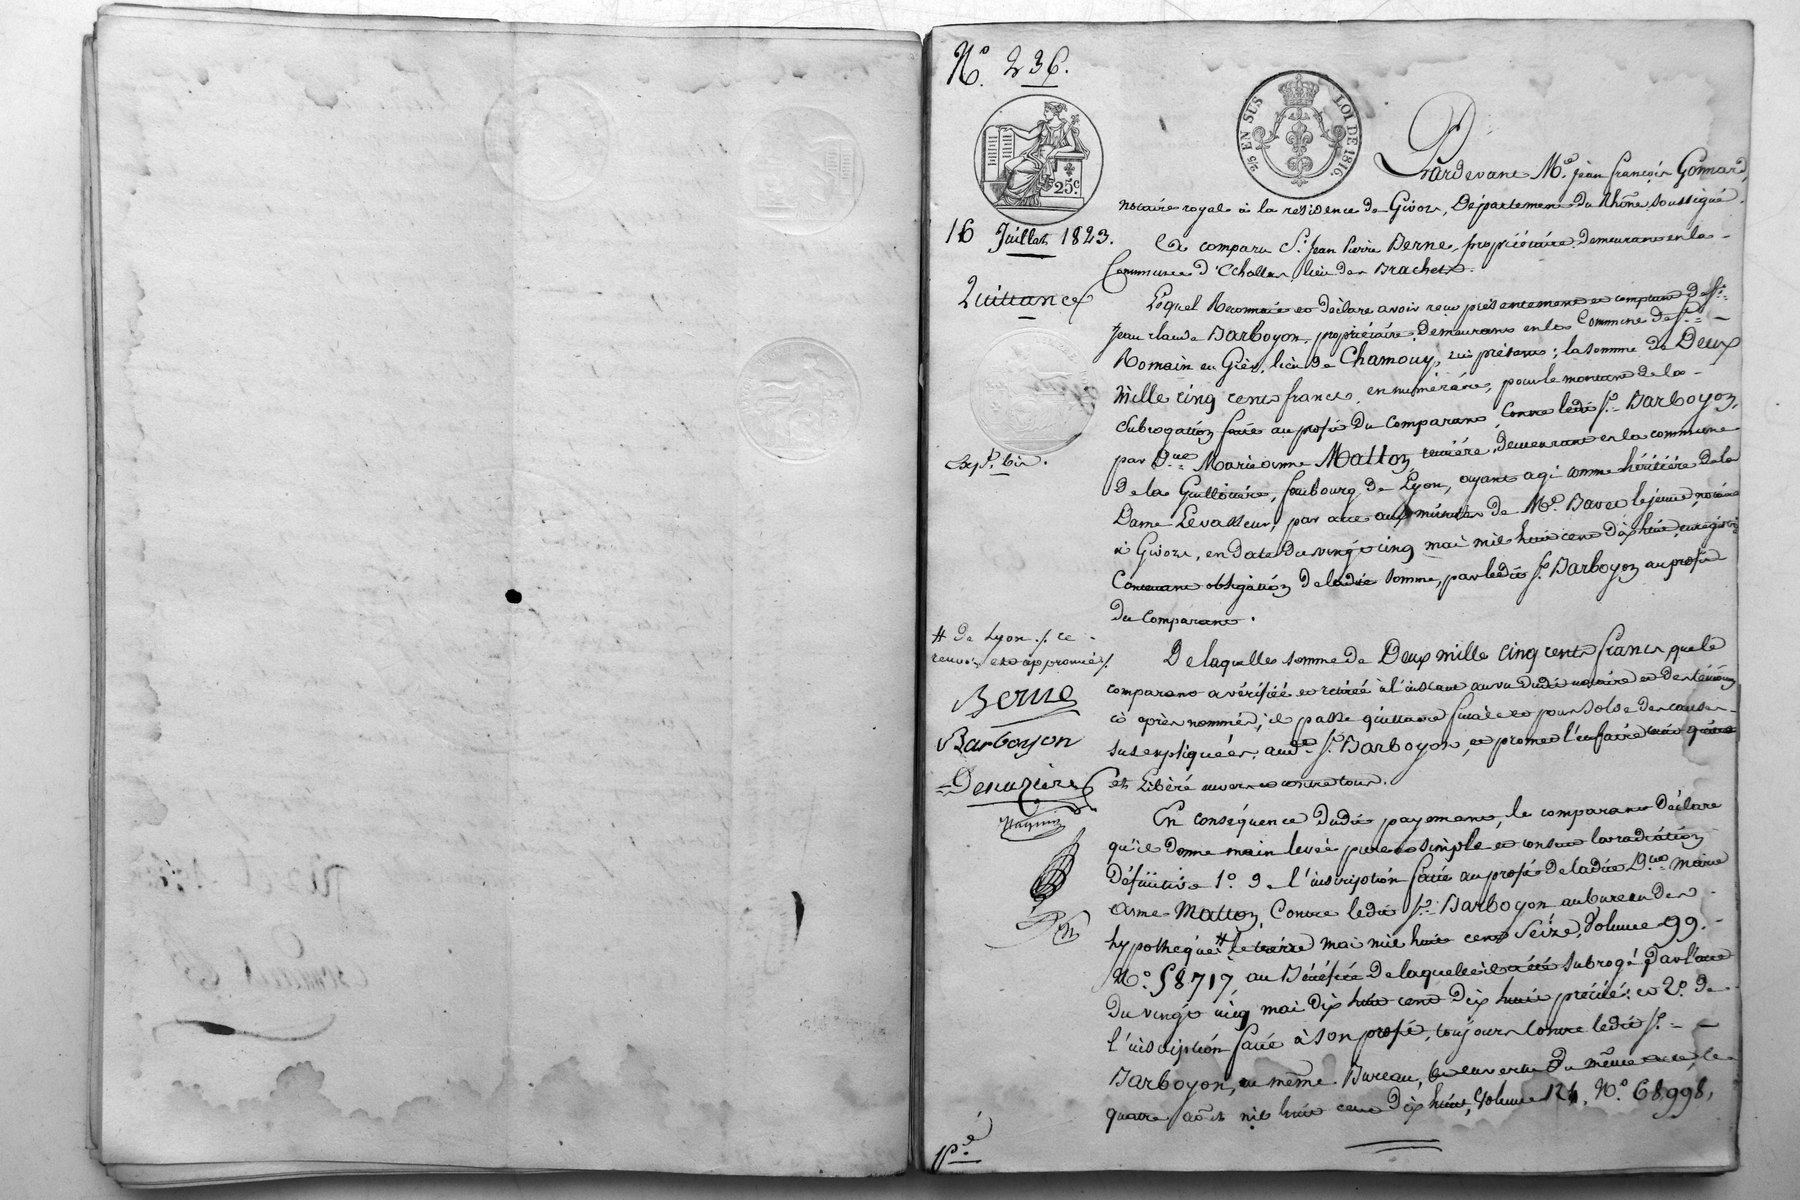 N.° 236.
2/5 EN SUS LOI DE 1816.
25.c
Pardevant M.e Jean François Gonnard,
notaire royal à la résidence de Givors, Département du Rhône soussigné.
16 Juillet 1823.
Est comparu S.r Jean Pierre Berne, propriétaire demeurant en la
Commune d'Echallas lieu des Brachets.
Quittance
Lequel Reconnait et déclare avoir reçu présentement et comptant de S.r
Jean Claude Barboyon, propriétaire demeurant en la Commune de S.t
Romain en Gier, lieu de Chamouy, ici présent; la somme de Deux
Mille cinq cents francs, en numéraire, pour le montant de la
Subrogation faite au profit du Comparant, Contre ledit S.r Barboyon,
Exp.é bis.
par D.lle Marie anne Matton, rentière, demeurant en la commune
de la Guillotière, faubourg de Lyon, ayant agi comme héritière de la
Dame Levasseur, par acte aux minutes de M.e Bavet lejeune, notaire
à Givors, en date du vingt cinq mai mil huit cent dix huit, enregistré
Contenant obligation de ladite somme, par ledit S.r Barboyon au profit
du Comparant.
# de Lyon ./. ce
renvoi est approuvé ./.
De laquelle somme de Deux mille cinq cents francs que le
comparant a vérifiée et retirée à l'instant au vu dudit notaire et des témoins
Berne
ci après nommés, il passe quittance finale et pour solde des causes
Barboyon
sus expliquées, aud. S.r Barboyon, et promet l'en faire tenir quitte
Denuzière
et Libéré envers et contre tous.
En conséquence dudit payement, le comparant déclare
qu'il donne main levée pure et simple et consent la radiation
Définitive 1.° de l'inscription faite au profit de ladite D.lle Marie
anne Matton, Contre ledit S.r Barboyon au bureau des
hypothèques # le treize mai mil huit cent Seize, Volume 99.
N.° 58717, au Bénéfice de laquelle il a été subrogé par l'acte
du vingt cinq mai dix huit cent dix huit précité: et 2.° de
l'inscription faite à son profit, toujours Contre ledit S.r
Barboyon, au même Bureau, en vertu du même acte, le
quatre août mil huit cent dix huit, Volume 124, N.° 68998,